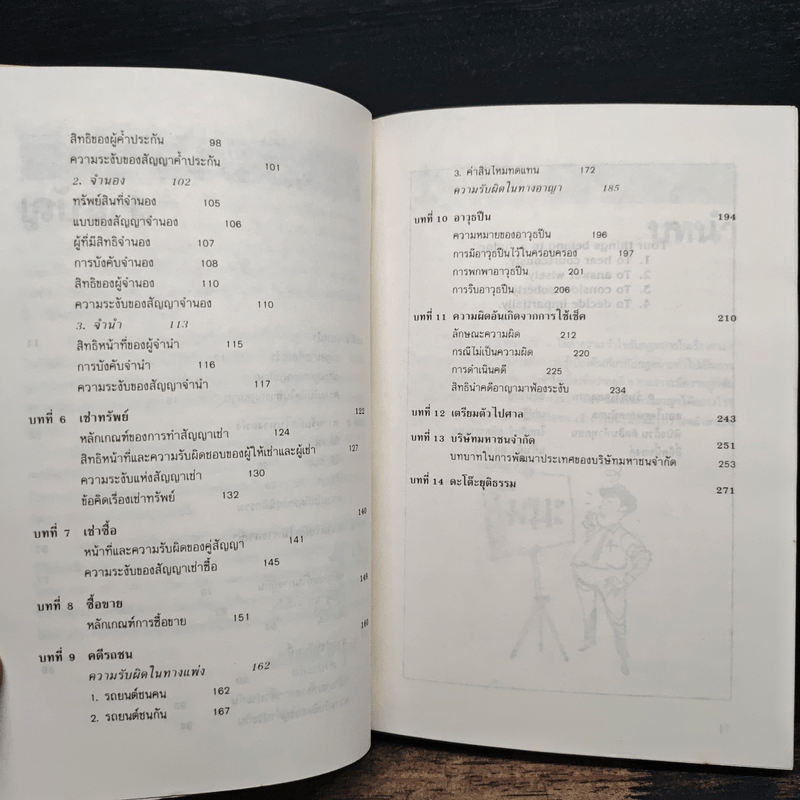 สิทธิของผู้ค้ำประกัน 98
ความระงับของสัญญาค้ำประกัน 101
2. จำนอง 102
ทรัพย์สินที่จำนอง 105
แบบของสัญญาจำนอง 106
ผู้ที่มีสิทธิจำนอง 107
การบังคับจำนอง 108
สิทธิของผู้จำนอง 110
ความระงับของสัญญาจำนอง 110
3. จำนำ 113
สิทธิหน้าที่ของผู้จำนำ 115
การบังคับจำนำ 116
ความระงับของสัญญาจำนำ 117
บทที่ 6 เช่าทรัพย์ 122
หลักเกณฑ์ของการทำสัญญาเช่า 124
สิทธิหน้าที่และความรับผิดชอบของผู้ให้เช่าและผู้เช่า 127
ความระงับแห่งสัญญาเช่า 130
ข้อคิดเรื่องเช่าทรัพย์ 132
บทที่ 7 เช่าซื้อ 140
หน้าที่และความรับผิดของคู่สัญญา 141
ความระงับของสัญญาเช่าซื้อ 145
บทที่ 8 ซื้อขาย 149
หลักเกณฑ์การซื้อขาย 151
บทที่ 9 คดีรถชน 160
ความรับผิดในทางแพ่ง 162
1. รถยนต์ชนคน 162
2. รถยนต์ชนกัน 167
3. ค่าสินไหมทดแทน 172
ความรับผิดในทางอาญา 185
บทที่ 10 อาวุธปืน 194
ความหมายของอาวุธปืน 196
การมีอาวุธปืนไว้ในครอบครอง 197
การพกพาอาวุธปืน 201
การริบอาวุธปืน 206
บทที่ 11 ความผิดอันเกิดจากการใช้เช็ค 210
ลักษณะความผิด 212
กรณีไม่เป็นความผิด 220
การดำเนินคดี 225
สิทธินำคดีอาญามาฟ้องระงับ 234
บทที่ 12 เตรียมตัวไปศาล 243
บทที่ 13 บริษัทมหาชนจำกัด 251
บทบาทในการพัฒนาประเทศของบริษัทมหาชนจำกัด 253
บทที่ 14 ตะโต๊ะยุติธรรม 271